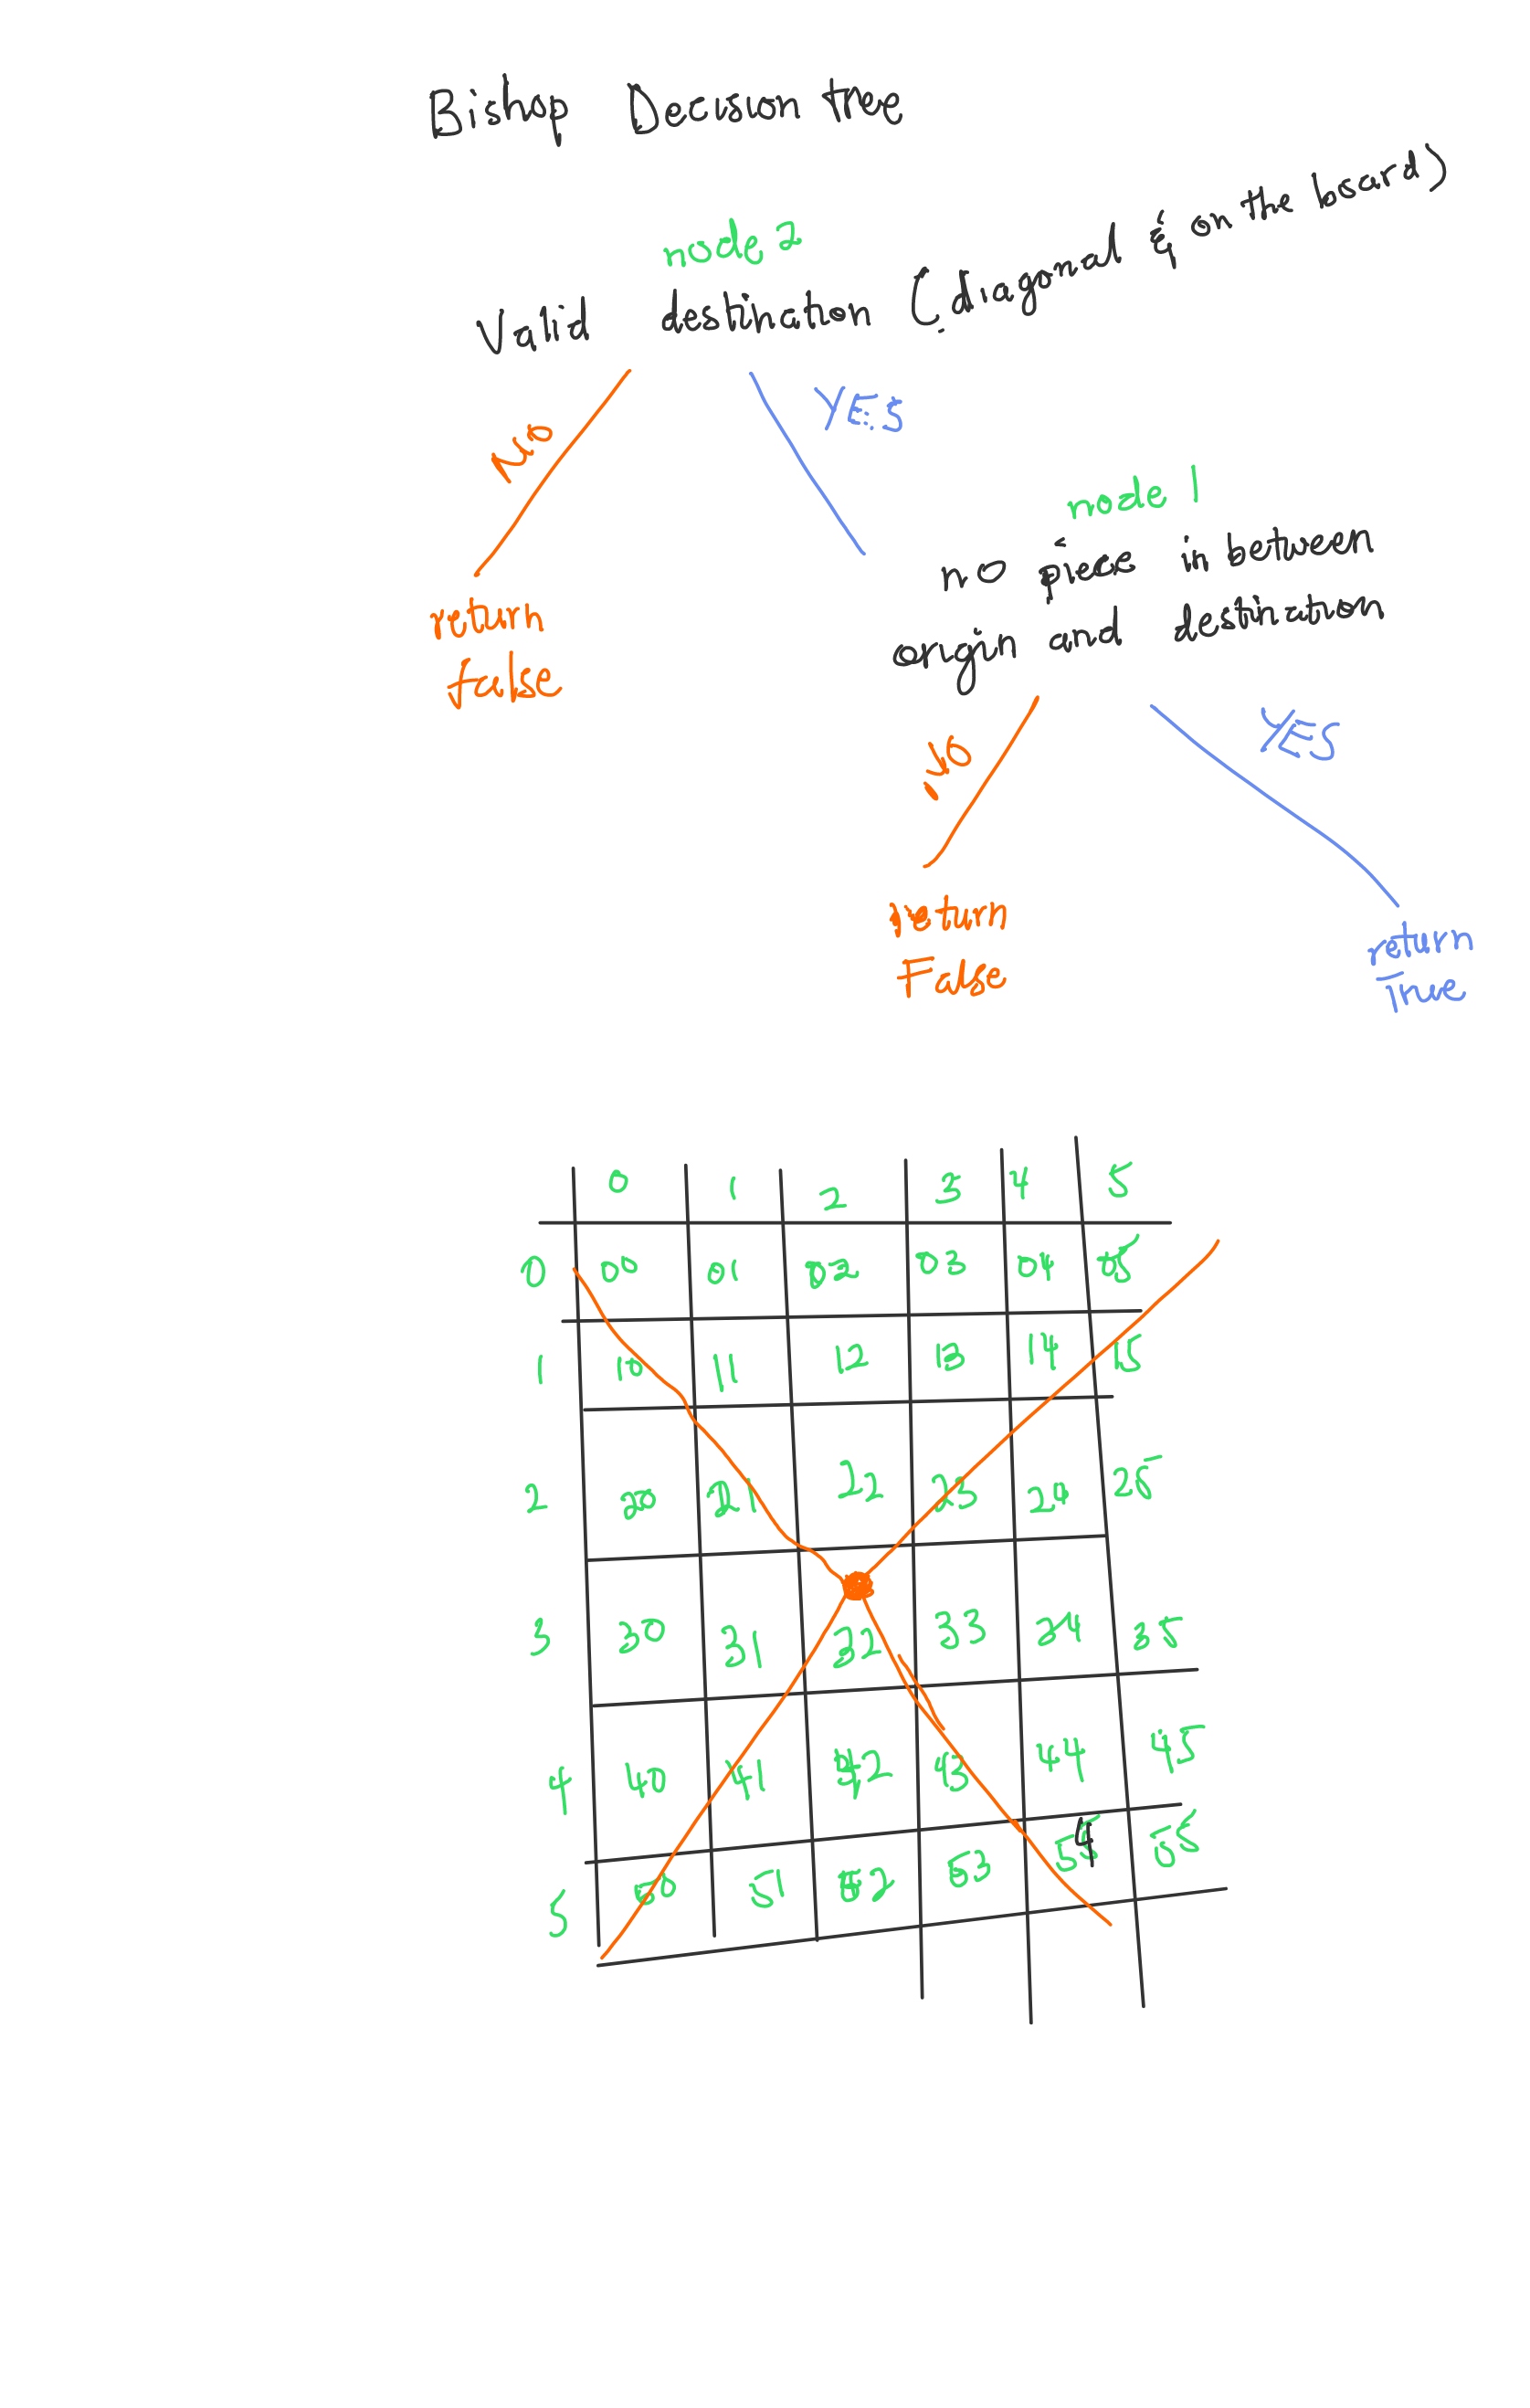 Bishop Decision tree
node 2
Valid destination (diagonal & on the board)
No YES
node 1
no piece in between
origin and destination
return
false
NO YES
return
False
return
True
0 1 2 3 4 5
0 00 01 02 03 04 05
1 10 11 12 13 14 15
2 20 21 22 23 24 25
3 30 31 32 33 34 35
4 40 41 42 43 44 45
5 50 51 52 53 54 55